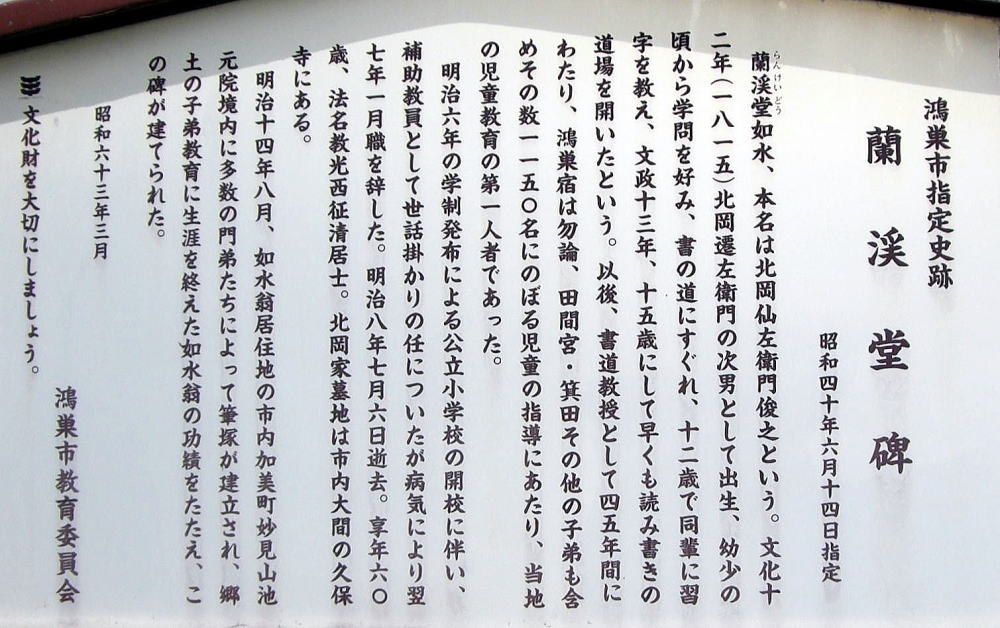 鴻巣市指定史跡
蘭渓堂碑
昭和四十年六月十四日指定
蘭渓堂如水、本名は北岡仙左衛門俊之という。文化十
らんけいどう
二年(一八一五)北岡遷左衛門の次男として出生、幼少の
頃から学問を好み、書の道にすぐれ、十二歳で同輩に習
字を教え、文政十三年、十五歳にして早くも読み書きの
道場を開いたという。以後、書道教授として四五年間に
わたり、鴻巣宿は勿論、田間宮・箕田その他の子弟も含
めその数一一五〇名にのぼる児童の指導にあたり、当地
の児童教育の第一人者であった。
明治六年の学制発布による公立小学校の開校に伴い、
補助教員として世話掛かりの任についたが病気により翌
七年一月職を辞した。明治八年七月六日逝去。享年六〇
歳、法名教光西征清居士。北岡家墓地は市内大間の久保
寺にある。
明治十四年八月、如水翁居住地の市内加美町妙見山池
元院境内に多数の門弟たちによって筆塚が建立され、郷
土の子弟教育に生涯を終えた如水翁の功績をたたえ、こ
の碑が建てられた。
昭和六十三年三月
鴻巣市教育委員会
文化財を大切にしましょう。